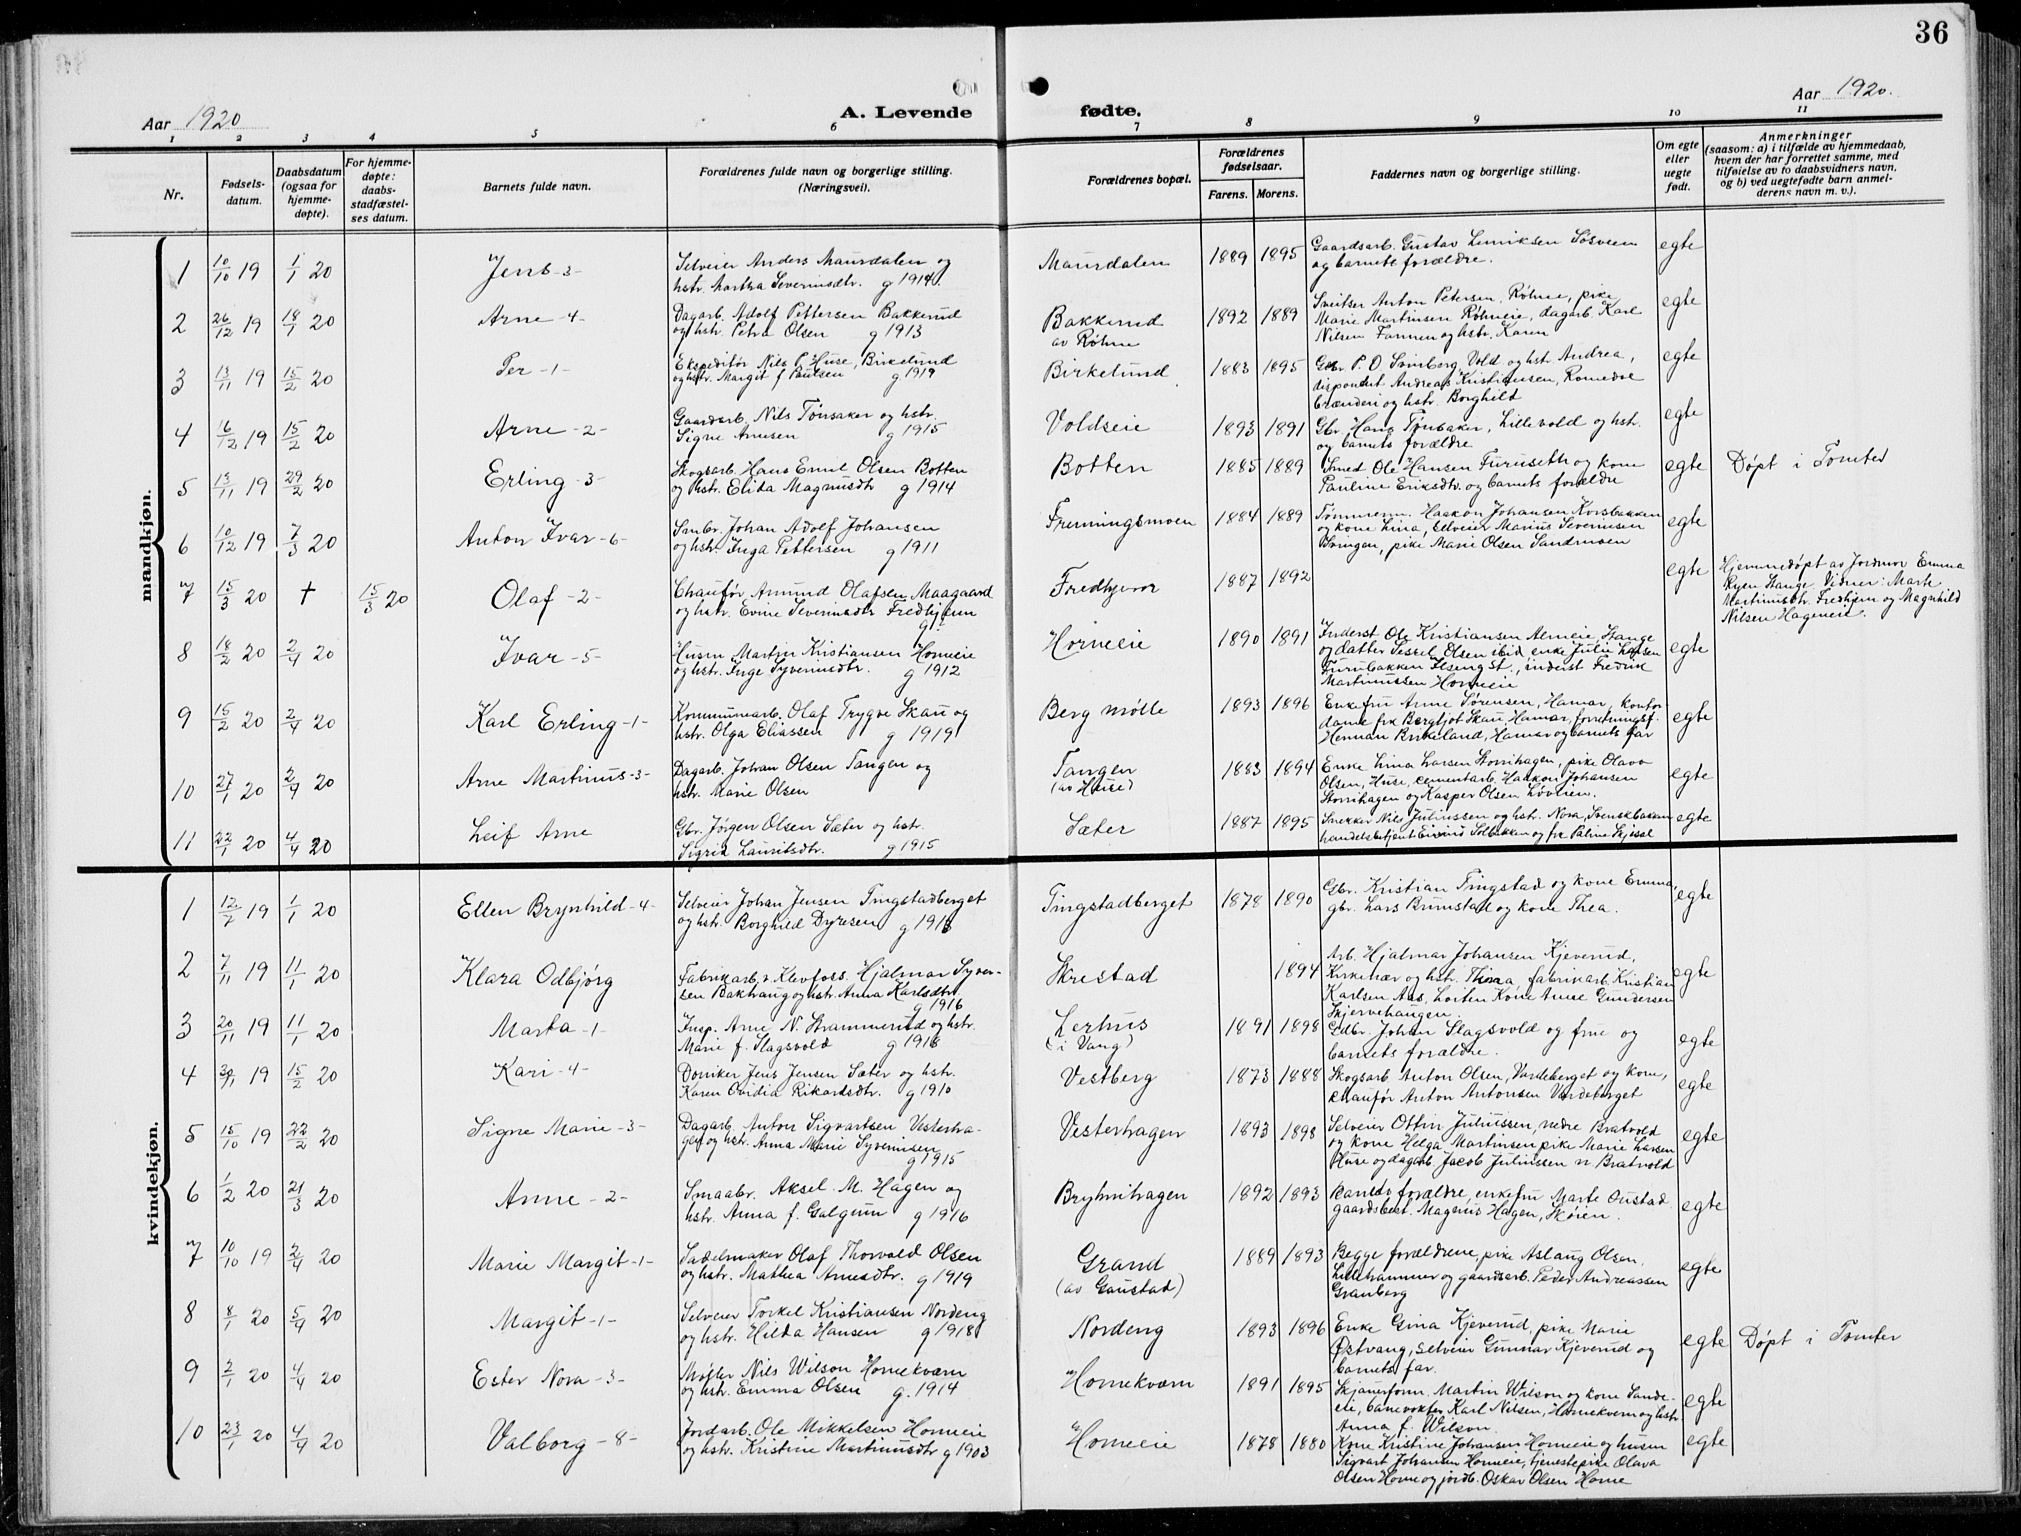 36
Aar 1920
A. Levende fødte.
Aar 1920.
1 2 3 4 5 6 7 8 9 10 11
Nr.
Fødsels-
datum.
Daabsdatum
(ogsaa for
hjemme-
døpte).
For hjemme-
døpte:
daabs-
stadfæstel-
ses datum.
Barnets fulde navn.
Forældrenes fulde navn og borgerlige stilling.
(Næringsvei).
Forældrenes bopæl.
Forældrenes
fødselsaar.
Farens. Morens.
Faddernes navn og borgerlige stilling.
Om egte
eller
uegte
født.
Anmerkninger
(saasom: a) i tilfælde av hjemmedaab,
hvem der har forrettet samme, med
tilføielse av to daabsvidners navn,
og b) ved uegtefødte barn anmel-
derens navn m. v.).
mandkjøn.
1 10/10 19 1/1 20 Jens -3-
Selveier Anders Maursdalen og
hstr. Martha Severinsdtr. g 1914.
Maursdalen 1889 1895
Gaardsarb. Gustav Henriksen Søsveen
og barnets forældre.
egte
2 26/12 19 18/1 20 Arne -4-
Dagarb. Adolf Pettersen Bakkerud
og hstr. Petra Olsen g 1913
Bakkerud
av Røhne
1892 1889
Sveitser Anton Petersen, Røhne, pike
Marie Martinsen Røhneie, dagarb. Karl
Nilsen Fannen og hstr. Karen
egte
3 13/11 19 15/2 20 Per -1-
Ekspeditør Nils P. Huse, Birkelund
og hstr. Margit f Paulsen g 1919
Birkelund 1883 1895
Gbr. P. O. Svinberg Vold og hstr Andrea,
disponent Andreas Kristiansen, Romedal
brænderi og hstr. Borghild
egte
4 16/12 19 15/2 20 Arne -2-
Gaardsarb. Nils Tønsaker og hstr.
Signe Arnesen g 1915
Voldseie 1893 1891
Gbr. Hans Tønsaker, Lillevold og hstr.
og barnets forældre
egte
5 13/11 19 29/2 20 Erling -3-
Skogsarb. Hans Emil Olsen Botten
og hstr. Elida Magnusdtr g 1914
Botten 1885 1889
Smed Ole Hansen Furuseth og kone
Pauline Eriksdtr. og barnets forældre
egte Døpt i Tomter
6 10/12 19 7/3 20 Anton Ivar -6-
Smbr. Johan Adolf Johansen
og hstr. Inga Pettersen g 1911
Fremingsmoen 1884 1889
Tømmerm. Haakon Johansen Korsbakken
og kone Lina, selveier Marius Severinsen
Svingen, pike Marie Olsen Sandmoen
egte
7 15/3 20 † 15/3 20 Olaf -2-
Chaufør Amund Olafsen Maagaard
og hstr. Evine Severinsdtr Fredhjem
g.
Fredhjem 1887 1892
egte
Hjemmedøpt av Jordmor Emma
Ryen Stange. Vidner: Marte
Martinusdtr. Fredhjem og Magnhild
Nilsen Hageneie.
8 18/2 20 2/4 20 Ivar -5-
Husm Martin Kristiansen Horneie
og hstr. Inge Syverinsdtr. g 1912
Horneie 1890 1891
Inderst Ole Kristiansen Almeie, Stange
og datter Sessel Olsen ibid, enke Julie Larsen
Furubakken Ilseng st., inderst Fredrik
Martinussen Horneie
egte
9 15/2 20 2/4 20 Karl Erling -1-
Kommunearb. Olaf Trygve Skau og
hstr. Olga Eliassen g 1919
Berg mølle 1893 1896
Enkefru Anne Sørensen, Hamar, kontor
dame frk Bergljot Skau, Hamar, forretningsf.
Herman Birkeland, Hamar og barnets far
egte
10 27/1 20 2/4 20 Arne Martinus -3-
Dagarb. Johan Olsen Tangen og
hstr. Marie Olsen
Tangen
(av Huse)
1883 1894
Enke Lina Larsen Storrihagen, pike Olava
Olsen, Huse, cementarb. Haakon Johansen
Storrihagen og Kasper Olsen Løvlien.
egte
11 22/1 20 4/4 20 Leif Arne
Gbr. Jørgen Olsen Sæter og hstr.
Sigrid Lauritsdtr. g 1915
Sæter 1887 1895
Snekker Nils Juliussen og hstr. Nora, Svenskbakken
handelsbetjent Einar Solbakken og frk Paline Skjessel
egte
kvindekjøn.
1 12/7 19 1/1 20 Ellen Brynhild -4-
Selveier Johan Jensen Tingstadberget
og hstr. Borghild Dyresen g 1913
Tingstadberget 1878 1890
Gbr. Kristian Tingstad og kone Emma,
gbr. Lars Brunstad og kone Thea.
egte
2 7/11 19 11/1 20 Klara Odbjørg
Fabrikarb. v. Klevfoss Hjalmar Syver-
sen Bakhaug og hstr. Anna Karlsdtr
g 1916
Skrestad 1894
Arb. Hjalmar Johansen Kjeverud,
Kirkenær og hstr. Thina, fabrikarb. Kristian
Karlsen Aas, Løiten Kone Anne Gundersen
Skjervehaugen.
egte
3 20/11 19 11/1 20 Marta -1-
Insp. Arne N. Strammerud og hstr.
Marie f. Slagsvold g 1918
Lerhus
(i Vang)
1891 1898
Gdbr. Johan Slagsvold og frue og
barnets forældre.
egte
4 30/11 19 15/2 20 Kari -4-
Doniker Jens Jensen Sæter og hstr.
Karen Ovidia Rikardsdtr. g 1910
Vestberg 1873 1888
Skogsarb Anton Olsen, Vardeberget og kone,
chaufør Anton Antonsen Vardeberget
egte
5 15/10 19 22/2 20 Signe Marie -3-
Dagarb. Anton Sigvartsen Vesterha-
gen og hstr. Anna Marie Syverinsen
g 1915
Vesterhagen 1893 1898
Selveier Ottin Juliussen, nedre Bratvold
og kone Helga Martinsen pike Marie Larsen
Huse og dagarb. Jacob Juliussen n Bratvold
egte
6 1/2 20 21/3 20 Anne -2-
Smaabr. Aksel M. Hagen og
hstr. Anna f. Galgum g 1916
Brynhihagen 1892 1893
Barnets forældre, enkefru Marte Oustad
gaardsbest. Magnus Hagen, Skøien.
egte
7 10/10 19 2/4 20 Marie Margit -1-
Sadelmaker Olaf Thorvald Olsen
og hstr. Mathea Arnesdtr. g 1919
Grand
(av Gaustad)
1889 1893
Begge forældrene, pike Aslaug Olsen,
Lillehammer og gaardsarb. Peder Andreassen
Granberg
egte
8 8/1 20 5/4 20 Margit -1-
Selveier Torkel Kristiansen Nordeng
og hstr. Hilda Hansen g 1918
Nordeng 1893 1896
Enke Gina Kjeverud, pike Marie
Østvang, selveier Gunnar Kjeverud og
barnets far.
egte Døpt i Tomter
9 2/1 20 4/4 20 Ester Nora -3-
Møller Nils Wilson Hornekvæm
og hstr. Emma Olsen g. 1914
Hornekværn 1891 1895
Skjærerform. Martin Wilson og kone Sande-
eie, banevokter Karl Nilsen, Hornekvern og hstr.
Anna f. Wilson.
egte
10 23/1 20 4/4 20 Valborg -8-
Jordarb. Ole Mikkelsen Horneie
og hstr. Kristine Martinusdtr g 1903
Horneie 1878 1880
Kone Kristine Johansen Horneie og husm
Sigvart Johansen Horneie, tjenestepike Olava
Olsen Horne og jordb. Oskar Olsen Horne
egte